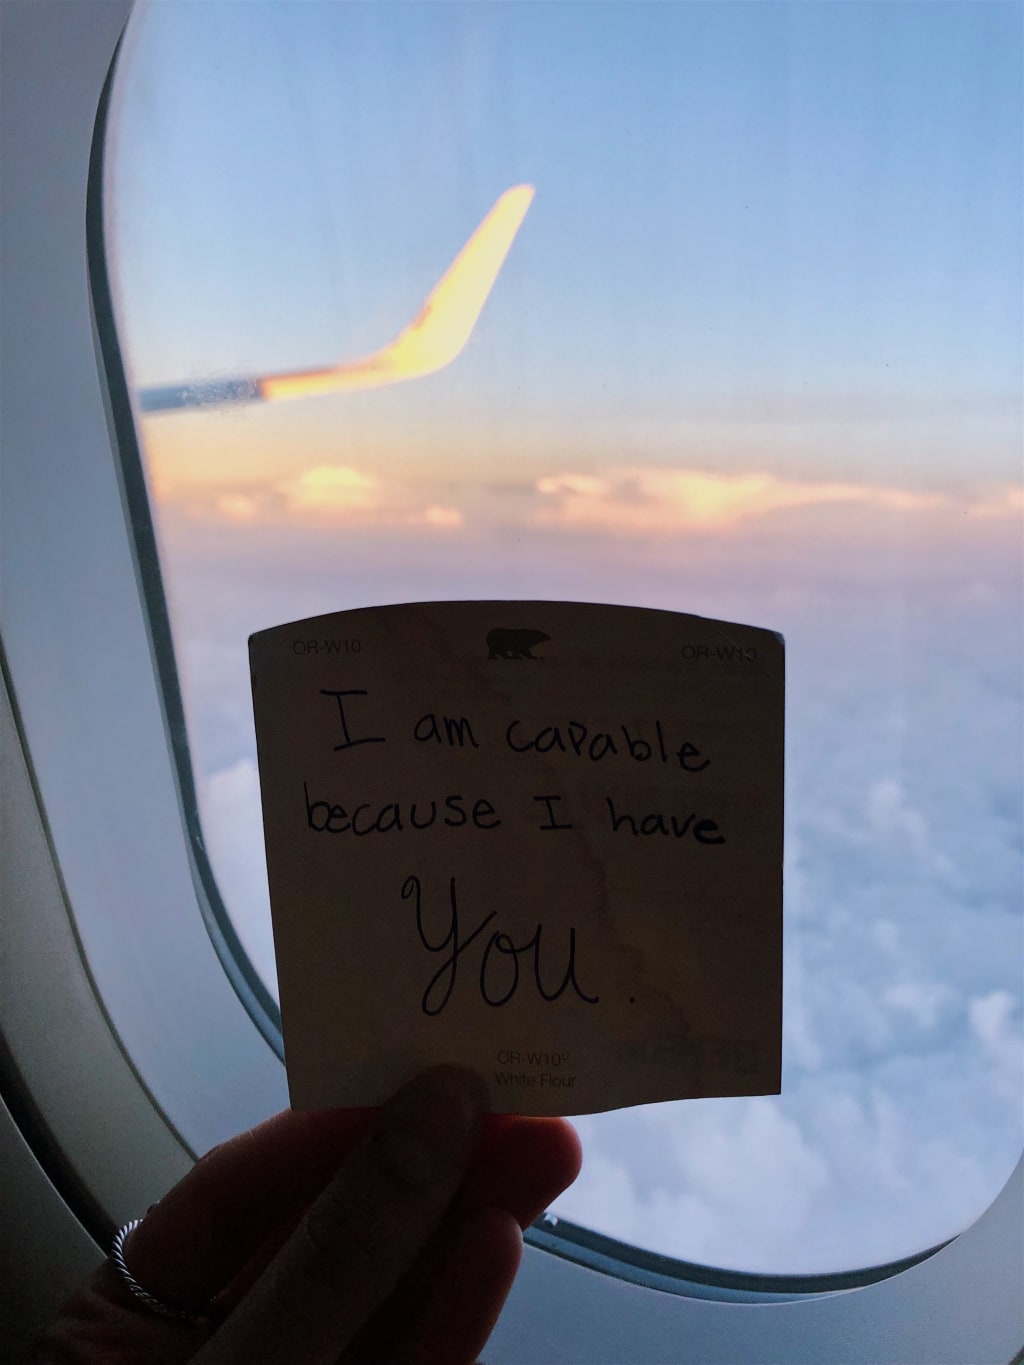 OR-W10 OR-W10
I am capable
because I have
You.
OR-W10
White Flour